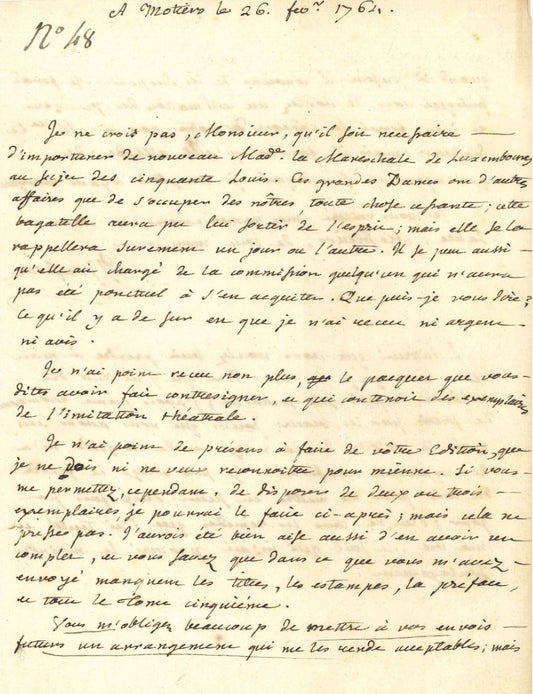 A Motiers le 26. fevr. 1764.
N° 48
Je ne crois pas, Monsieur, qu'il soit necessaire
d'importuner de nouveau Made. la Mareschale de Luxembourg
au sujet des cinquante Louis. Ces grandes Dames ont d'autres
affaires que de s'occuper des nôtres, toute chose cessante; cette
bagatelle aura pu lui sortir de l'esprit; mais elle se la
rappellera surement un jour ou l'autre. Il se peut aussi
qu'elle ait chargé de la commission quelqu'un qui n'aura
pas été ponctuel à s'en acquiter. Que puis-je vous dire?
Ce qu'il y a de sur est que je n'ai receu ni argent
ni avis.
Je n'ai point receu non plus, le pacquet que vous
dites avoir fait contresigner, et qui contenoit des exemplaires
de l'imitation théatrale.
Je n'ai point de présens à faire de vôtre Edition, que
je ne dois ni ne veux reconnoitre pour mienne. Si vous
me permettez, cependant, de disposer de deux ou trois
exemplaires, je pourrai le faire ci-après; mais cela ne
presse pas. J'aurois été bien aise aussi d'en avoir un
complet, et vous savez que dans ce que vous m'avez
envoyé manquent les titres, les estampes, la préface,
et tout le Tome cinquiéme.
Vous m'obligez beaucoup de mettre à vos envois
futurs un arrangement qui me les rende acceptables; mais